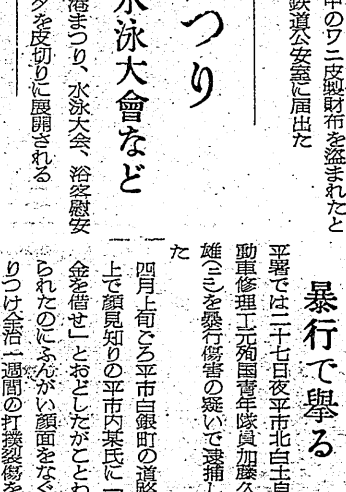 中のワニ皮製財布を盗まれたと
鉄道公安室に届出た
つり
水泳大會など
港まつり、水泳大会、浴客慰安
タを皮切りに展開される
暴行で擧る
平署では二十七日夜平市北白土自
動車修理工元殉国青年隊員加藤久
雄を暴行傷害の疑いで逮捕し
た
四月上旬ごろ平市白銀町の道路
上で顔見知りの平市内某氏に
金を借せ」とおどしたがことわ
られたのにふんがい顔面をなぐ
りつけ全治一週間の打撲裂傷を